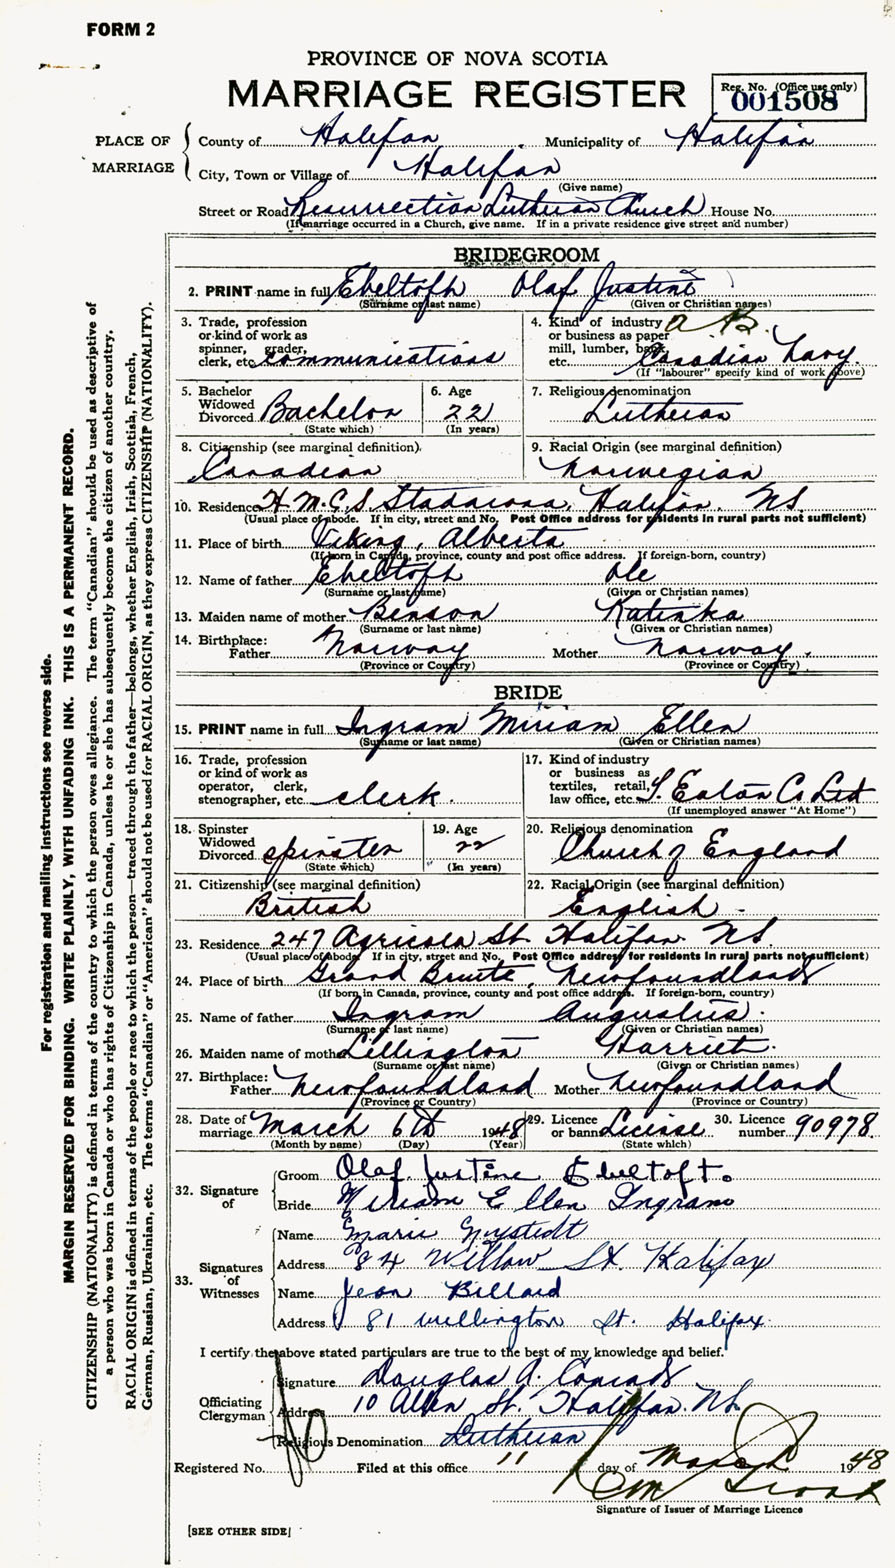 FORM 2
PROVINCE OF NOVA SCOTIA
MARRIAGE REGISTER
Reg. No. (Office use only)
001508
PLACE OF MARRIAGE
County of Halifax Municipality of Halifax
City, Town or Village of Halifax
(Give name)
Street or Road Resurrection Lutheran Church House No.
(If marriage occurred in a Church, give name. If in a private residence give street and number)
BRIDEGROOM
2. PRINT name in full Ebeltoft Olaf Justine
(Surname or last name) (Given or Christian names)
3. Trade, profession or kind of work as spinner, grader, clerk, etc. Communications
4. Kind of industry or business as paper mill, lumber, bank, etc. A B. Canadian Navy.
(If "labourer" specify kind of work above)
5. Bachelor Widowed Divorced Bachelor
(State which)
6. Age 22
(In years)
7. Religious denomination
Lutheran
8. Citizenship (see marginal definition).
Canadian
9. Racial Origin (see marginal definition)
Norwegian
10. Residence H.M.C.S. Stadacona, Halifax. NS.
(Usual place of abode. If in city, street and No. Post Office address for residents in rural parts not sufficient)
11. Place of birth Viking, Alberta
(If born in Canada, province, county and post office address. If foreign-born, country)
12. Name of father Ebeltoft Ole
(Surname or last name) (Given or Christian names)
13. Maiden name of mother Benson Katinka
(Surname or last name) (Given or Christian names)
14. Birthplace: Father Norway Mother Norway.
(Province or Country) (Province or Country)
BRIDE
15. PRINT name in full Ingram Miriam Ellen
(Surname or last name) (Given or Christian names)
16. Trade, profession or kind of work as operator, clerk, stenographer, etc. clerk.
17. Kind of industry or business as textiles, retail, law office, etc. T. Eaton Co Ltd
(If unemployed answer "At Home")
18. Spinster Widowed Divorced spinster
(State which)
19. Age 22
(In years)
20. Religious denomination
Church of England
21. Citizenship (see marginal definition)
British
22. Racial Origin (see marginal definition)
English
23. Residence 247 Agricola St. Halifax. NS.
(Usual place of abode. If in city, street and No. Post Office address for residents in rural parts not sufficient)
24. Place of birth Grand Bruite, Newfoundland
(If born in Canada, province, county and post office address. If foreign-born, country)
25. Name of father Ingram Augustus.
(Surname or last name) (Given or Christian names)
26. Maiden name of mother Lillington Harriet.
(Surname or last name) (Given or Christian names)
27. Birthplace: Father Newfoundland Mother Newfoundland
(Province or Country) (Province or Country)
28. Date of marriage March 6th 1948
(Month by name) (Day) (Year)
29. Licence or banns License
(State which)
30. Licence number 90978.
32. Signature of
Groom Olaf Justine Ebeltoft.
Bride Miriam Ellen Ingram
33. Signatures of Witnesses
Name Marie Nystedt
Address 84 Willow St. Halifax
Name Jean Billard
Address 81 Wellington St. Halifax.
I certify the above stated particulars are true to the best of my knowledge and belief.
Officiating Clergyman
Signature Douglas A. Conrad
Address 10 Allen St. Halifax. NS.
Religious Denomination Lutheran
Registered No. Filed at this office 11 day of March 1948
Signature of Issuer of Marriage Licence
[SEE OTHER SIDE]
For registration and mailing instructions see reverse side.
MARGIN RESERVED FOR BINDING. WRITE PLAINLY, WITH UNFADING INK. THIS IS A PERMANENT RECORD.
CITIZENSHIP (NATIONALITY) is defined in terms of the country to which the person owes allegiance. The term "Canadian" should be used as descriptive of
a person who was born in Canada or who has rights of Citizenship in Canada, unless he or she has subsequently become the citizen of another country.
RACIAL ORIGIN is defined in terms of the people or race to which the person—traced through the father—belongs, whether English, Irish, Scottish, French,
German, Russian, Ukrainian, etc. The terms "Canadian" or "American" should not be used for RACIAL ORIGIN, as they express CITIZENSHIP (NATIONALITY).